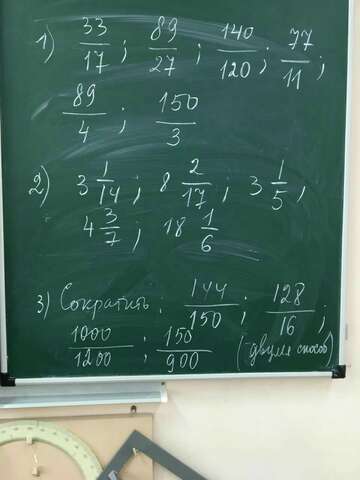 1) 33/17 ; 89/27 ; 140/120 ; 77/11 ;
89/4 ; 150/3
2) 3 1/14 ; 8 2/17 ; 3 1/5 ;
4 3/7 ; 18 1/6
3) Сократить: 144/150 ; 128/16 ;
1000/1200 ; 150/900 (двумя способ)